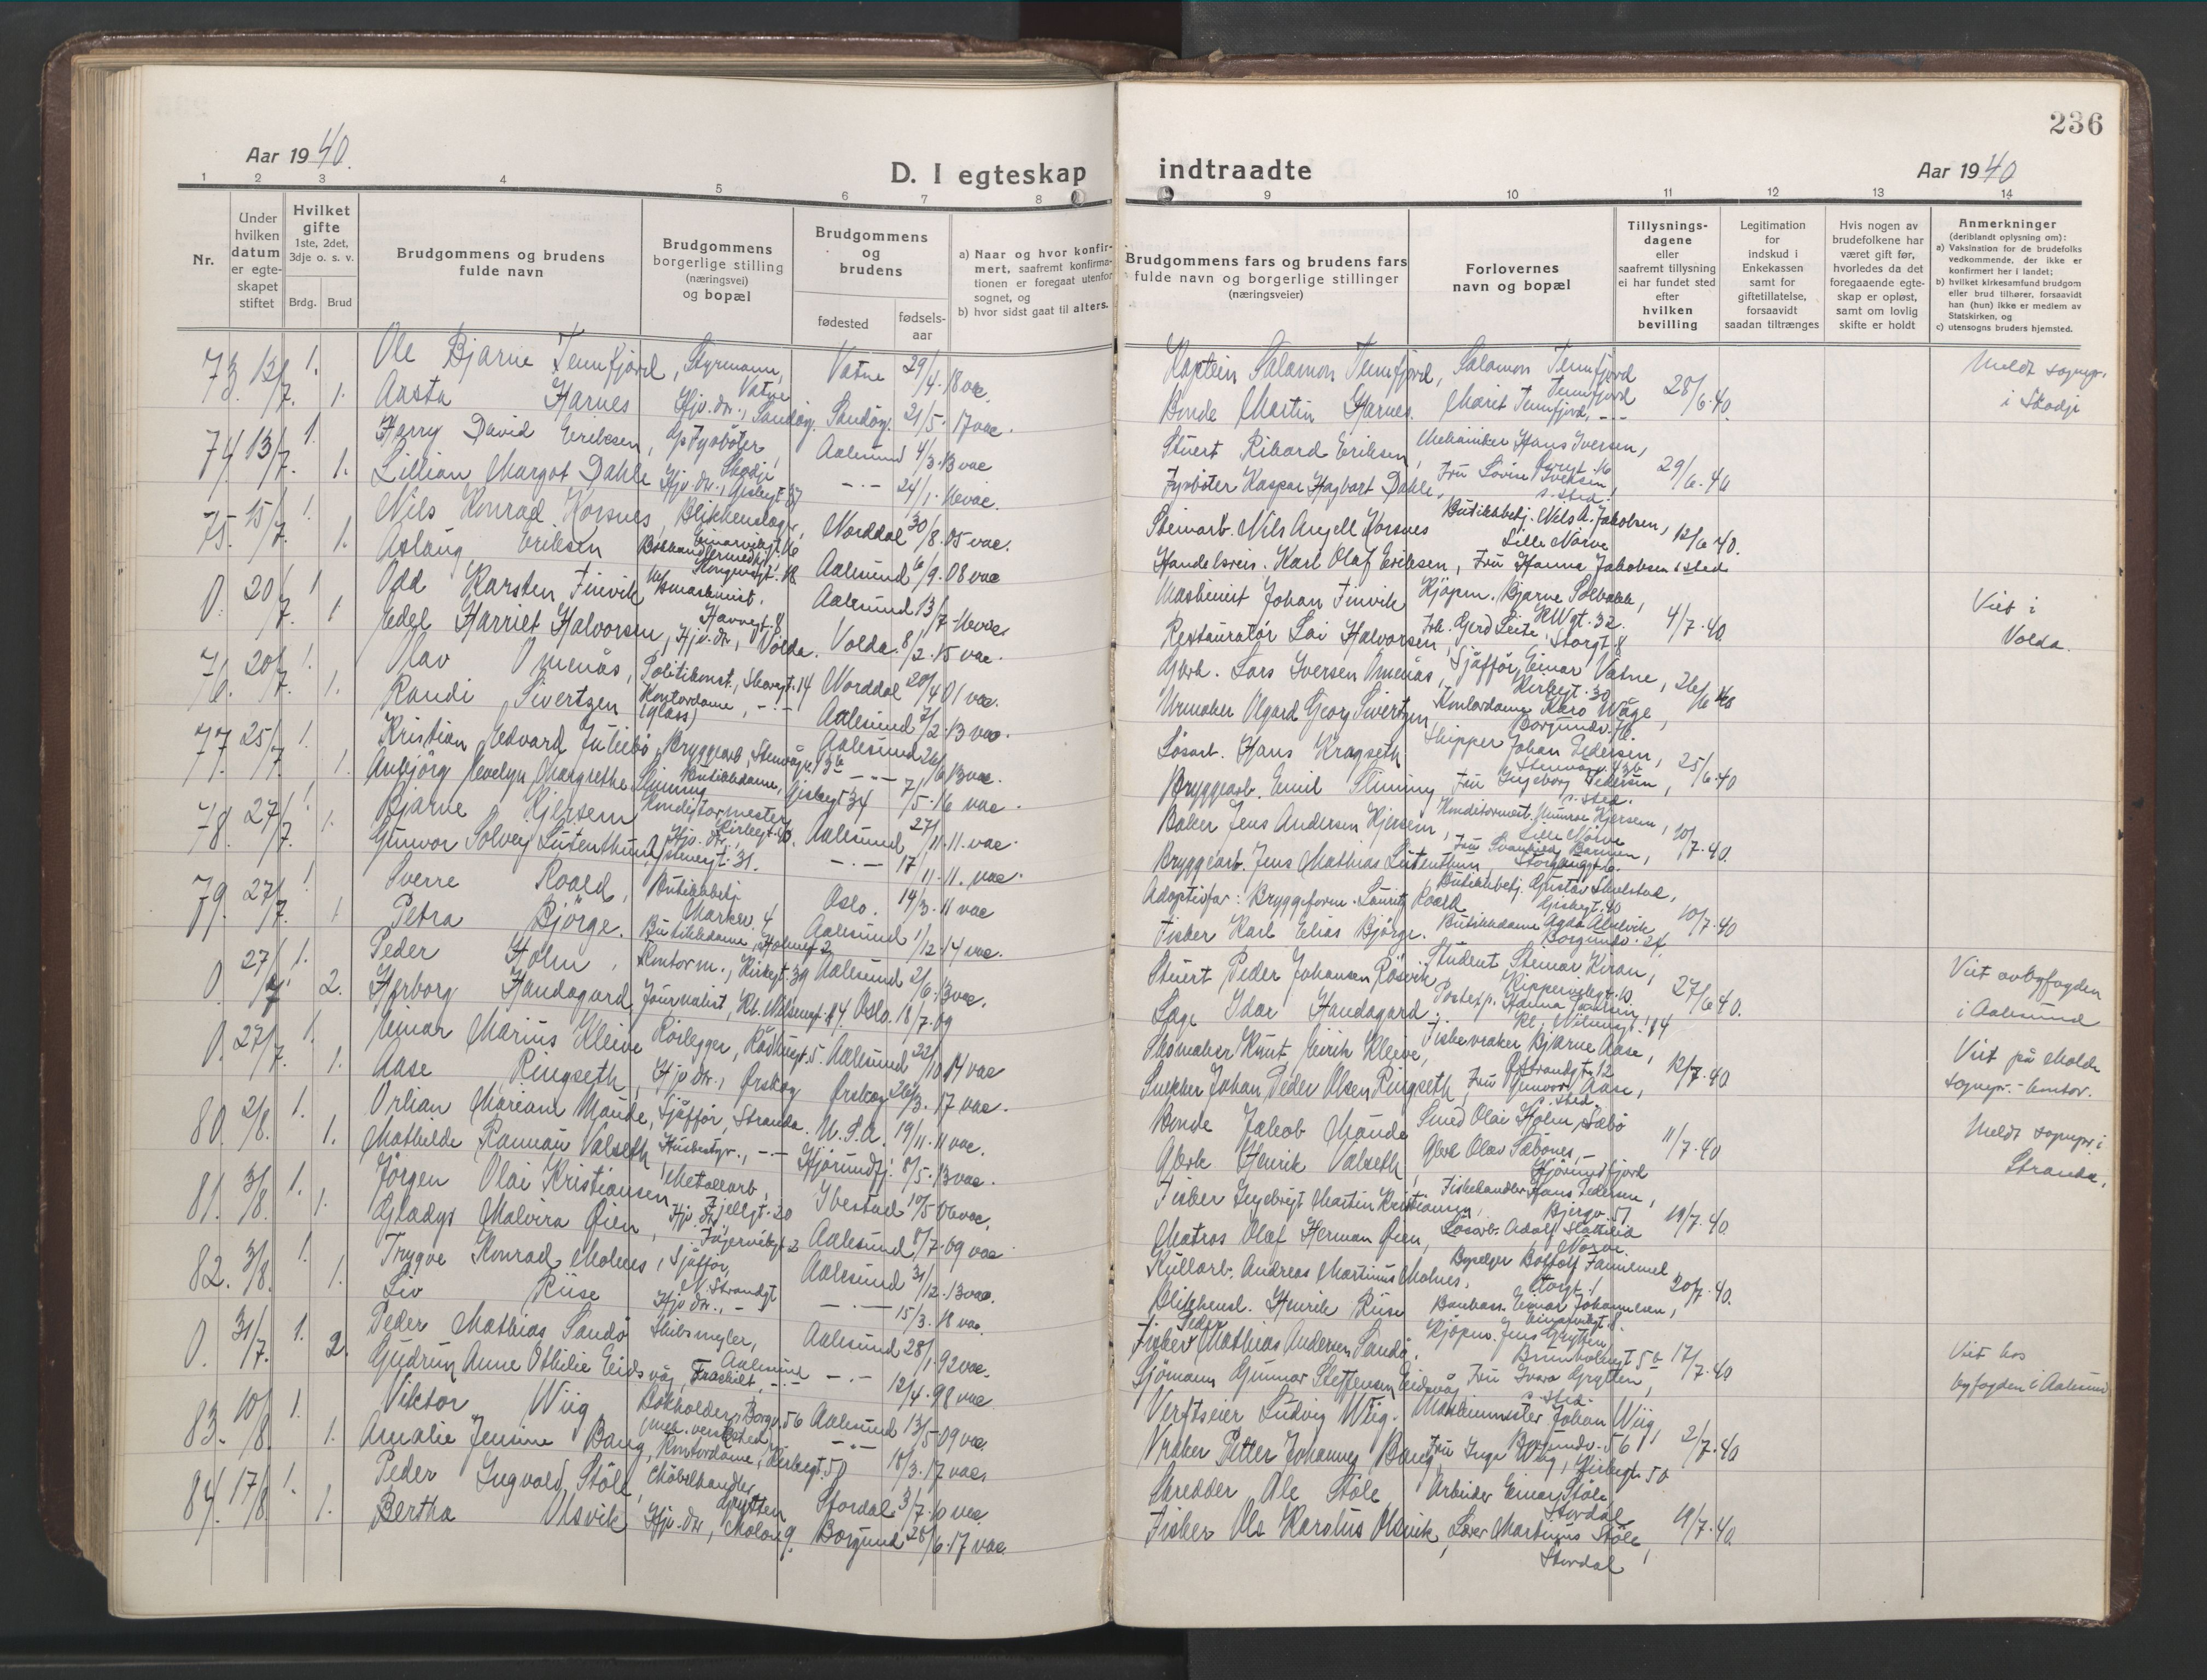 236
Aar 1940.
D. I egteskap
indtraadte
Aar 1940
1 2 3 4 5 6 7 8 9 10 11 12 13 14
Nr.
Under hvilken datum er egteskapet stiftet
Hvilket gifte
1ste, 2det, 3dje o. s. v.
Brdg. Brud
Brudgommens og brudens fulde navn
Brudgommens borgerlige stilling (næringsvei) og bopæl
Brudgommens og brudens
fødested
fødsels-aar
a) Naar og hvor konfir-
mert, saafremt konfirma-
tionen er foregaat utenfor
sognet, og
b) hvor sidst gaat til alters.
Brudgommens fars og brudens fars
fulde navn og borgerlige stillinger
(næringsveier)
Forlovernes
navn og bopæl
Tillysnings-
dagene
eller
saafremt tillysning
ei har fundet sted
efter
hvilken
bevilling
Legitimation
for
indskud i
Enkekassen
samt for
giftetillatelse,
forsaavidt
saadan tiltrænges
Hvis nogen av
brudefolkene har
været gift før,
hvorledes da det
foregaaende egte-
skap er opløst,
samt om lovlig
skifte er holdt
Anmerkninger
(deriblandt oplysning om):
a) Vaksination for de brudefolks
vedkommende, der ikke er
konfirmert her i landet;
b) hvilket kirkesamfund brudgom
eller brud tilhører, forsaavidt
han (hun) ikke er medlem av
Statskirken, og
c) utensogns bruders hjemsted.
73. 12/7. 1. Ole Bjarne Tennfjord, Styrmann, Vatne Vatne 29/4.18 vac. Kaptein Salamon Tennfjord, Salamon Tennfjord Tennfjord 28/6.40. Meldt sognepr.
1. Aasta Harnes Hjv. dtr., Sandøy. Sandøy. 21/5.17 vac. Bonde Martin Harnes. Marit Tennfjord, - - i Skodje
74. 13/7. 1. Harry David Eriksen, Fyrbøter, Skodje Aalesund 4/3.13 vac Stuert Rikard Eriksen, Mekaniker Hans Iversen, 29/6.40
1. Lillian Margot Dahle Hjv. dtr., -.- 24/1.16 vac. Fyrbøter Kaspar Hagbart Dahle, Fru Lovise Iversen, s. sted.
75. 15/7. 1. Nils Konrad Korsnes, Blikkenslager, Norddal 30/8.05 vac. Steinarb. Nils Angell Korsnes Butikkbetj. Nils A. Jakobsen, Lille Nørve 12/6.40.
1. Aslaug Eriksen Kongensgt. 18 Aalesund 6/9.08 vac Handelsreis. Karl Olaf Eriksen, Fru Hanna Jakobsen s sted
0. 20/7. 1 Odd Karsten Finvik Maskinist. Aalesund 13/7.16 vac. Maskinist Johan Finvik Kjøpm. Bjarne Solbakk, 4/7.40. Viet i
1 Edel Harriet Halvorsen, Hjv. dtr., Volda. Volda. 8/2.15 vac. Restauratør Lai Halvorsen, Frk. Gerd Leite, Storgt. 8 Volda.
76. 20/7. 1. Olav Omenås, Politikonst., Norddal 20/4.01 vac. Gbrk. Lars Iversen Omenås, Sjåfför Einar Vatne, Kirkegt. 30 26/6.40
1. Randi Sivertzen Kontordame, -.- Aalesund 7/2.13 vac. Urmaker Olgard Georg Sivertzen, Kontordame Karo Wåge,
77. 25/7. 1. Kristian Edvard Juliebø, Bryggearb. Aalesund 26/6.13 vac. Løsarb. Hans Kragseth Skipper Johan Pedersen, 25/6.40
1. Anbjörg Evelyn Margrethe Slinning Butikkdame, -.- 7/5.16 vac. Bryggearb. Emil Slinning Fru Ingeborg Pedersen, s. sted.
78. 27/7. 1. Bjarne Kjersem Konditormester, Aalesund 27/11.11 vac. Baker Jens Andersen Kjersem, Lille Nørve 10/7.40.
1. Gunvor Solveig Lutenthun, Hjv. dtr., -.- 17/11.11. vac. Bryggearb. Jens Mathias Lutenthun
79. 27/7. 1 Sverre Roald, Butikkbetj. Oslo. 14/3.11 vac Adoptivfar: Bryggeform. Lauritz Roald Butikkbetj. Gustav Skulstad, 10/7.40
1 Petra Bjørge. Butikkdame, Aalesund 1/12.14 vac. Fisker Karl Elias Bjørge. Butikkdame
0. 27/7. 1. Peder Holm, Kontorm., Kirkegt. 39 Aalesund 21/6.13 vac. Stuert Peder Johansen Røsvik Student Steinar Kiran, 27/6.40. Viet av byfogden
2. Herborg Handagard Journalist, Oslo. 18/7.09 Lege Idar Handagard. i Aalesund
0. 27/7. 1. Einar Marius Kleive Rørlegger, Aalesund 22/10.14 vac Skomaker Knut Eirik Kleive, Fiskevraker Bjarne Aase, 12/7.40 Viet på Molde
1. Aase Ringseth, Hjv. dtr., Ørskog Ørskog 26/3.17 vac. Snekker Johan Peder Olsen Ringseth, Fru Gunvor Aase, s. sted sognepr.-kontor.
80. 2/8. 1. Orlian Mariam Maude, Sjåfför, Stranda. U.S.A. 19/11.11 vac. Bonde Jakob Maude Smed Olai Holm, Sæbø 11/7.40 Meldt sognepr. i
1. Mathilde Rannau Valseth, Husbestyr., -- Hjørundfj. 8/5.13 vac. Gbrk Henrik Valseth Gbrk Olav Sæbønes, Hjørundfjord Stranda.
81. 3/8. 1. Jørgen Olai Kristiansen Metallarb, Fjellgt. 20 Ibestad 10/5.06 vac. Fisker Ingebrigt Martin Kristiansen, Fiskehandler Hans Pedersen, 19/7.40.
1. Gladys Malvira Øien, Hjv. dtr. Aalesund 8/7.09 vac. Matros Olaf Herman Øien, Løsarb. Adolf Slatleid Nørve.
82. 3/8. 1. Trygve Konrad Molnes, Sjåfför, N. Strandgt Aalesund 31/12.13 vac. Kullarb. Andreas Martinus Molnes, 20/7.40.
1. Liv Riise Hjv. dtr., -.- -.- 15/3.18 vac. Blikkensl. Henrik Riise Einar Johannesen,
0. 31/7. 1. Peder Mathias Sandø Skibsmegler, Aalesund Aalesund 28/1.92 vac. Fisker Peder Mathias Andersen Sandø. Kjøpm. Jens Grytten, 17/7.40 Viet hos
2. Gudrun Anne Othilie Eidsvåg, Fraskilt, -.- -.- 12/4.98 vac Sjømann Gunnar Steffensen Eidsvåg Fru Ivara Grytten, s. sted. byfogden i Aalesund
83. 10/8. 1. Viktor Wiig Bokholder, Borgv. 56 Aalesund 13/5.09 vac. Verftseier Ludvig Wiig. Maskinmester Johan Wiig, 2/7.40
1. Amalie Jensine Bang, Kontordame, Kirkegt. 50 -.- 18/3.17 vac. Vraker Petter Johannes Bang Fru Inga Wiig, Kirkegt 50
84. 17/8. 1. Peder Ingvald Støle, Møbelhandler, Grytten Stordal 3/7.10 vac Skredder Ole Støle Arbeider Einar Støle Stordal 19/7.40.
1. Bertha Ulsvik Hjv. dtr., Borgund 28/6.17 vac. Fisker Ole Karolus Ulsvik, Lærer Martinus Støle, Stordal